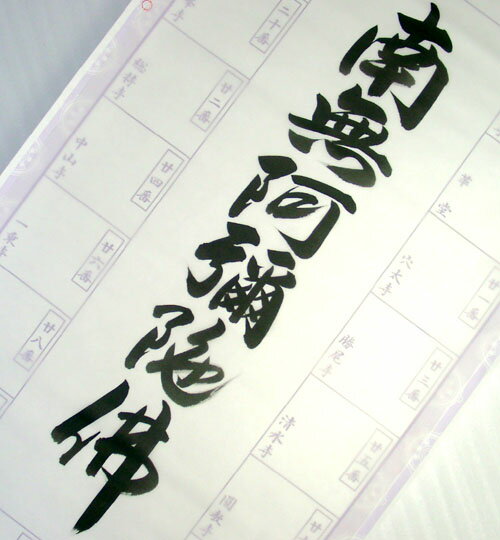 南無阿彌陀佛
華堂
廿一番
穴太寺
廿三番
勝尾寺
廿五番
清水寺
圓教寺
二十番
廿二番
総持寺
廿四番
中山寺
廿六番
一乗寺
廿八番